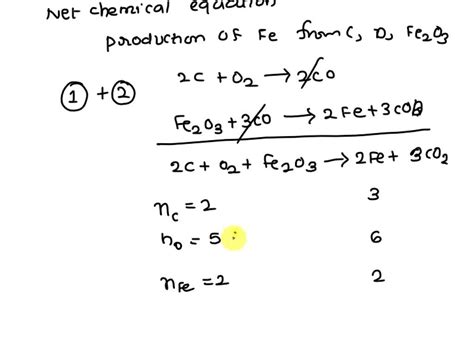 Net chemical equation
production of Fe from C, O, Fe2O3
① + ② 2C + O2 → 2CO
Fe2O3 + 3CO → 2Fe + 3CO2
2C + O2 + Fe2O3 → 2Fe + 3CO2
nC = 2 3
nO = 5 6
nFe = 2 2